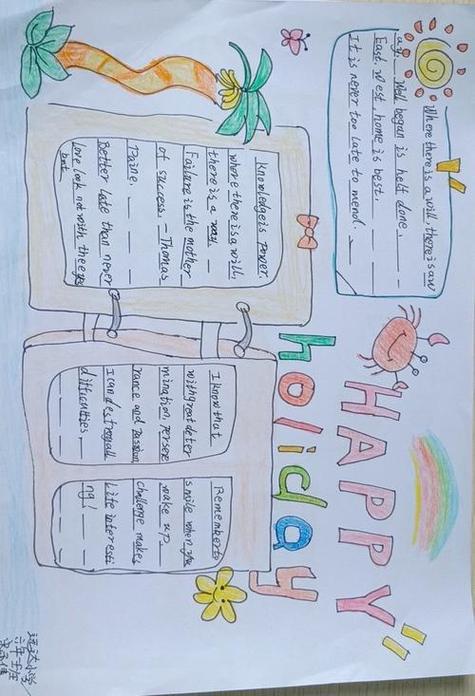 HAPPY
holiday
Where there is a will, there is aw
ay. Well began is helf done.
East. West home is best.
It is never too late to mend.
Knowledge is power.
where there is a will,
there is a way
Failure is the mother
of success. - Thomas
Paine.
Better late than never
Love look not with the eye
but
I know that
with great deter
mination, perseve
rance and passion,
I can destroy all
difficulties.
Remember to
smile when you
wake up.
challenge makes
Life interesti
ng!
远达小学